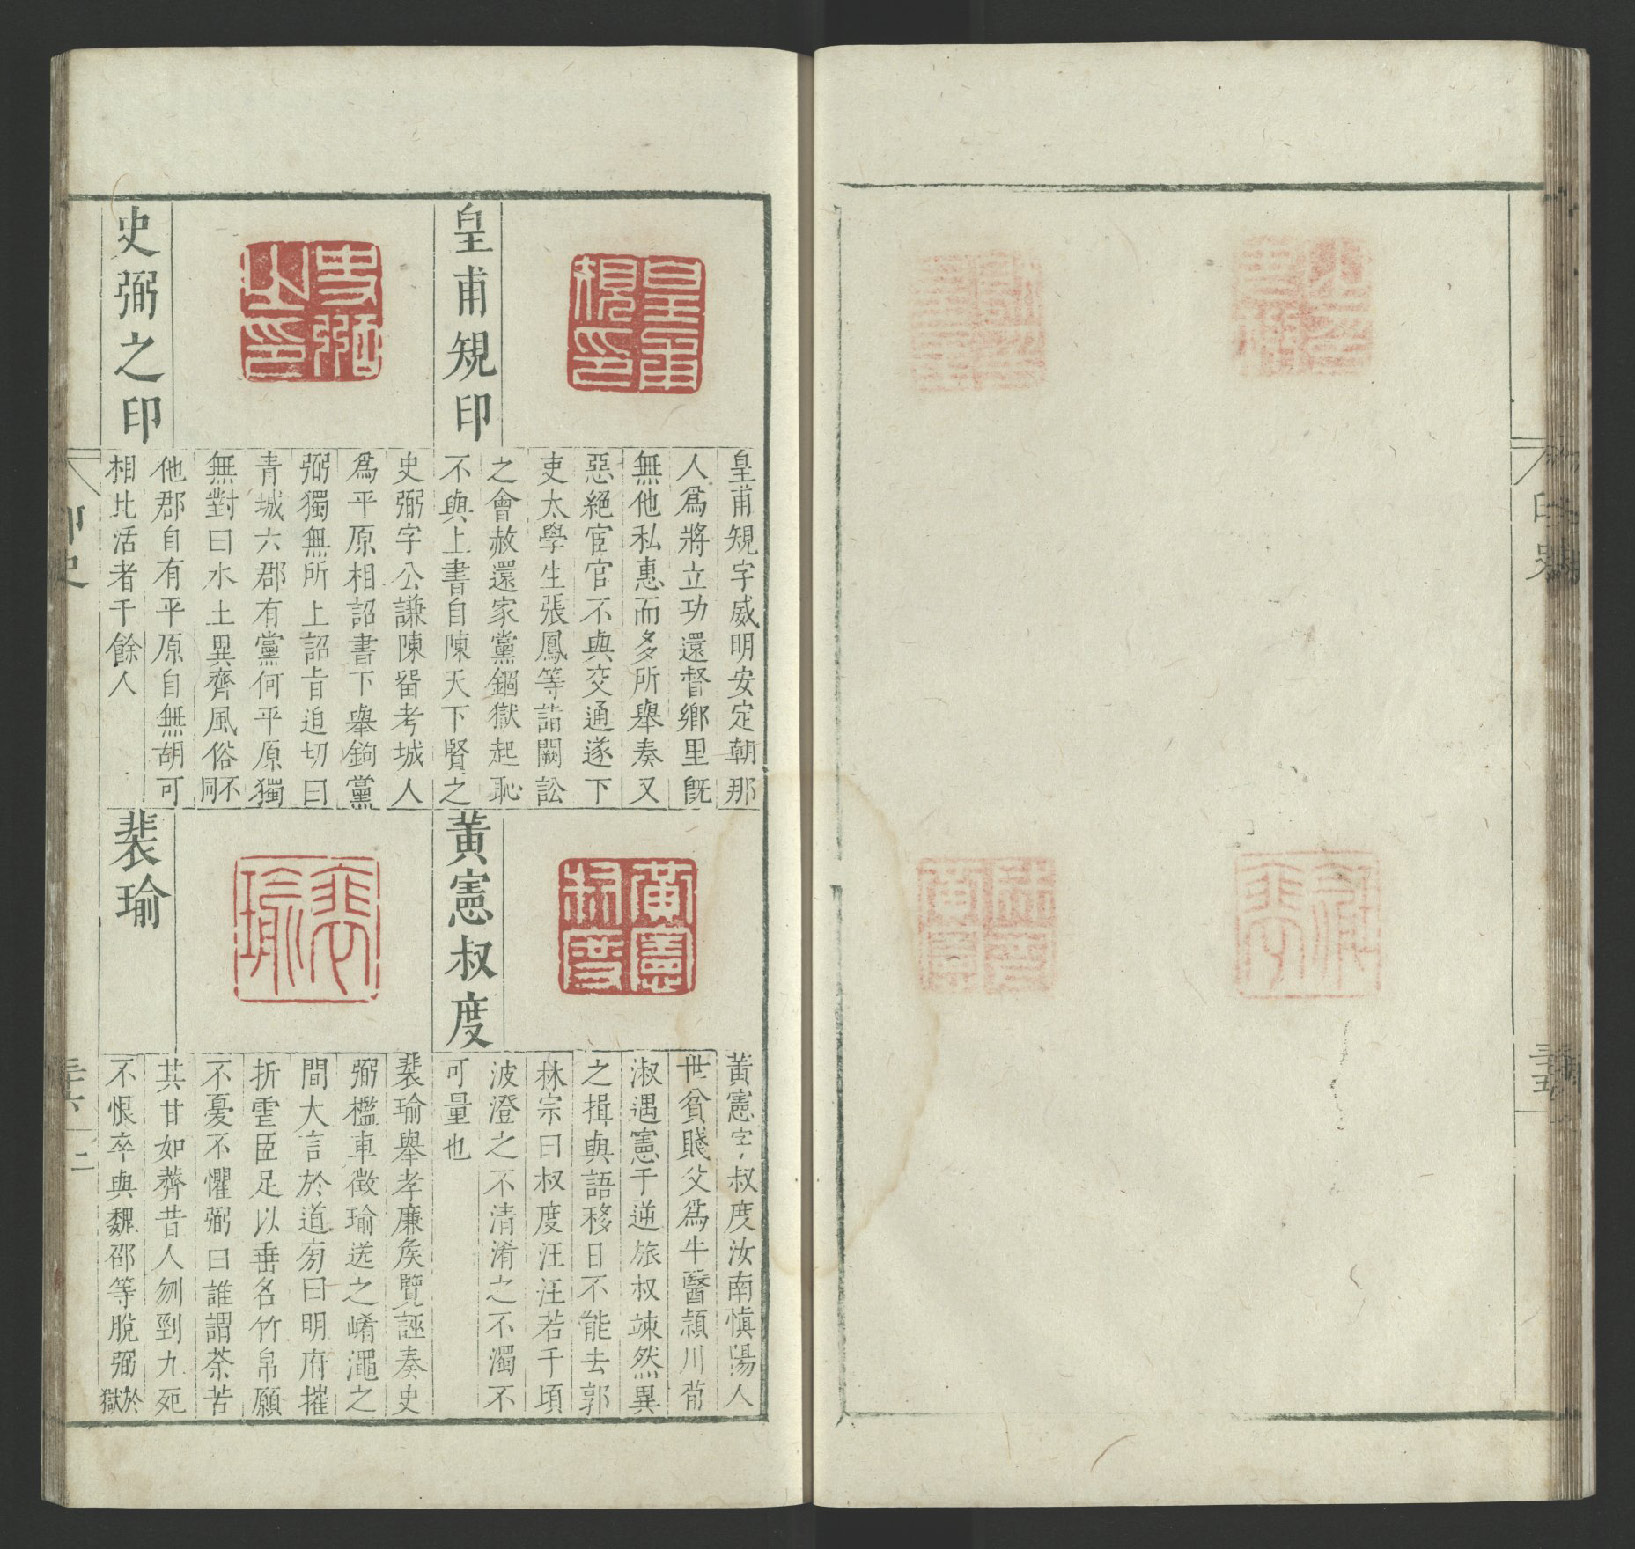 印史
皇甫規印
皇甫規字威明安定朝那
人爲將立功還督鄉里旣
無他私惠而多所舉奏又
惡絕宦官不與交通遂下
吏太學生張鳳等詣闕訟
之會赦還家黨錮獄起恥
不與上書自陳天下賢之
史弼之印
史弼字公謙陳畱考城人
爲平原相詔書下舉鉤黨
弼獨無所上詔旨迫切曰
青城六郡有黨何平原獨
無對曰水土異齊風俗不同
他郡自有平原自無胡可
相比活者千餘人
黃憲叔度
黃憲字叔度汝南愼陽人
世貧賤父爲牛醫潁川荀
淑遇憲于逆旅叔竦然異
之揖與語移日不能去郭
林宗曰叔度汪汪若千頃
波澄之不清淆之不濁不
可量也
裴瑜
裴瑜舉孝廉矦覽誣奏史
弼檻車徵瑜送之崤澠之
間大言於道旁曰明府摧
折虐臣足以垂名竹帛願
不憂不懼弼曰誰謂荼苦
其甘如薺昔人刎剄九死
不恨卒與魏邵等脫弼於獄
印史
三十六